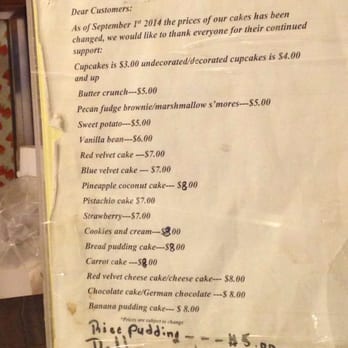 Dear Customers:
As of September 1st 2014 the prices of our cakes has been
changed, we would like to thank everyone for their continued
support:
Cupcakes is $3.00 undecorated/decorated cupcakes is $4.00
and up
Butter crunch---$5.00
Pecan fudge brownie/marshmallow s'mores---$5.00
Sweet potato---$5.00
Vanilla bean---$6.00
Red velvet cake ---$7.00
Blue velvet cake --- $7.00
Pineapple coconut cake--- $8.00
Pistachio cake $7.00
Strawberry---$7.00
Cookies and cream---$8.00
Bread pudding cake---$8.00
Carrot cake ---$8.00
Red velvet cheese cake/cheese cake--- $8.00
Chocolate cake/German chocolate ---$ 8.00
Banana pudding cake--- $ 8.00
*Prices are subject to change
Rice Pudding - - - #5.00